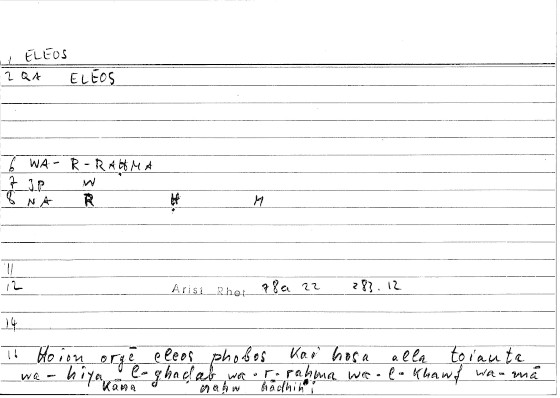 1 ELEOS
2 QA ELEOS
6 WA- R-RAḤMA
7 JP W
8 NA R Ḥ M
11
12 Arist Rhet 78a 22 283.12
14
16 Hoion orgē eleos phobos kai hosa alla toiauta
wa-hiya l-ghaḍab wa-r-raḥma wa-l-khawf wa-mā
kāna naḥw hādhihi